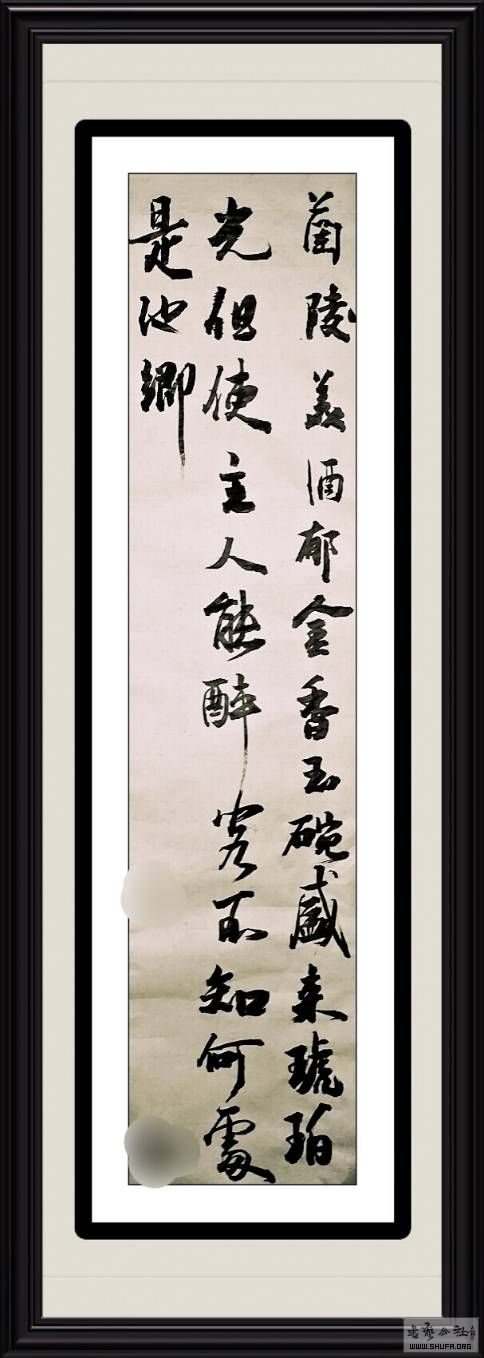 蘭陵美酒郁金香玉碗盛来琥珀
光但使主人能醉客不知何處
是他鄉
WWW.SHUFA.ORG